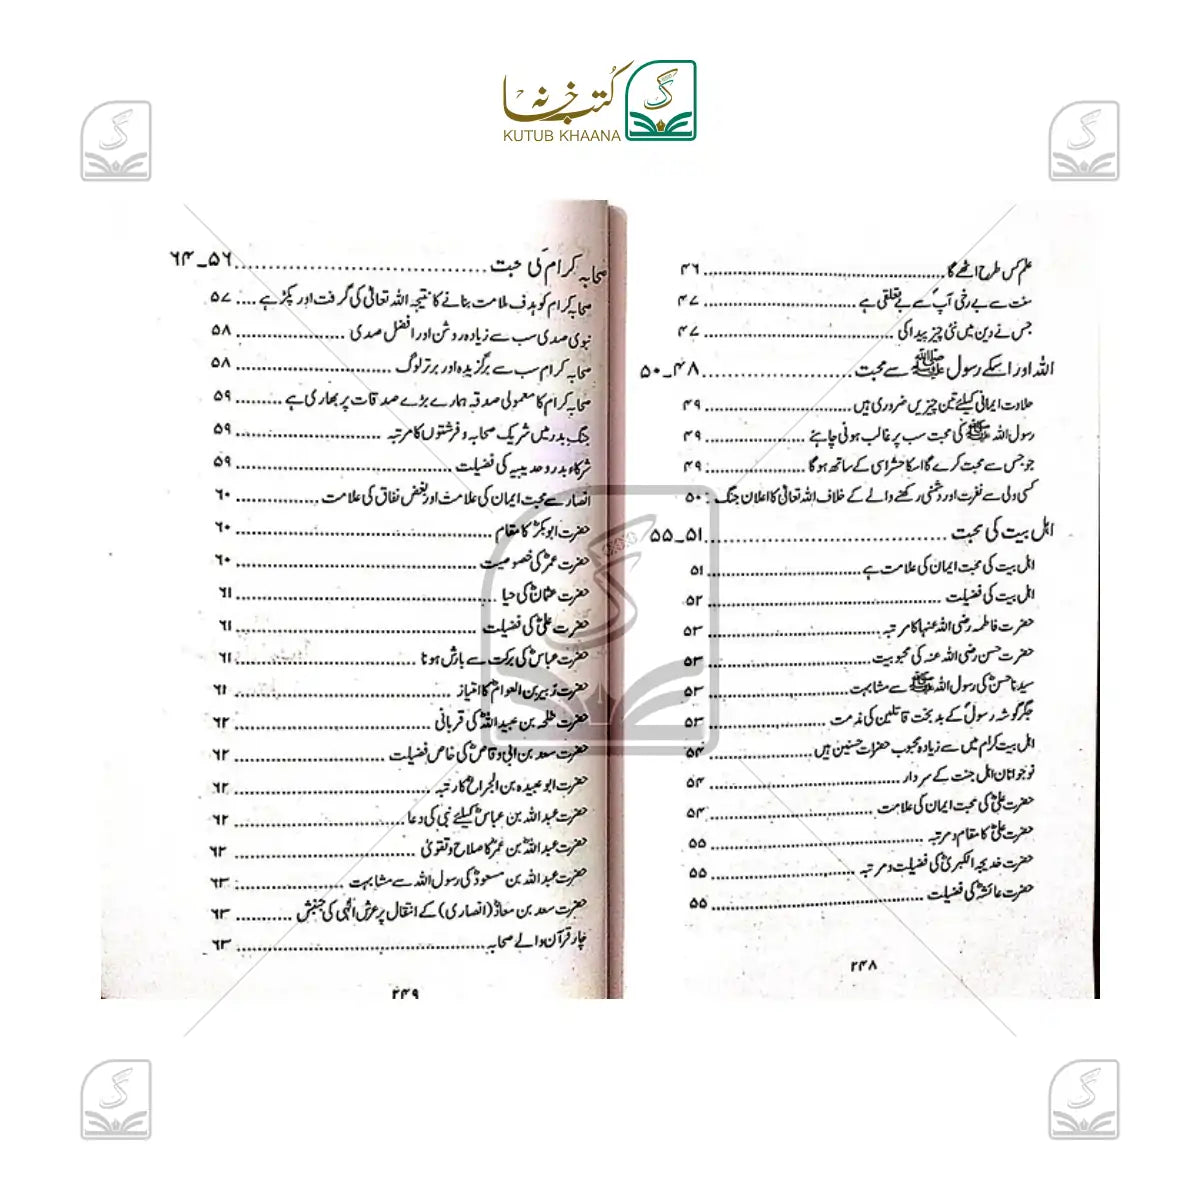 کتب خانہ
KUTUB KHAANA
علم کس طرح اٹھے گا ۴۶
سنت سے بے رخی آپؐ سے بے تعلقی ہے ۴۷
جس نے دین میں نئی چیز پیدا کی ۴۷
اللہ اور اسکے رسول ﷺ سے محبت ۴۸۔۵۰
حلاوت ایمانی کیلئے تین چیزیں ضروری ہیں ۴۹
رسول اللہ ﷺ کی محبت سب پر غالب ہونی چاہئے ۴۹
جو جس سے محبت کرے گا اسکا حشر اسی کے ساتھ ہوگا ۴۹
کسی ولی سے نفرت اور دشمنی رکھنے والے کے خلاف اللہ تعالیٰ کا اعلان جنگ ۵۰
اہل بیت کی محبت ۵۱۔۵۵
اہل بیت کی محبت ایمان کی علامت ہے ۵۱
اہل بیت کی فضیلت ۵۲
حضرت فاطمہ رضی اللہ عنہا کا مرتبہ ۵۳
حضرت حسن رضی اللہ عنہ کی محبوبیت ۵۳
سیدنا حسنؓ کی رسول اللہ ﷺ سے مشابہت ۵۳
جگر گوشہ رسولؐ کے بدبخت قاتلین کی مذمت ۵۳
اہل بیت کرام میں سے زیادہ محبوب حضرات حسنین ہیں ۵۴
نوجوانان اہل جنت کے سردار ۵۴
حضرت علیؓ کی محبت ایمان کی علامت ۵۴
حضرت علیؓ کا مقام و مرتبہ ۵۵
حضرت خدیجہ الکبریٰؓ کی فضیلت و مرتبہ ۵۵
حضرت عائشہؓ کی فضیلت ۵۵
۲۴۸
صحابہ کرامؓ کی محبت ۵۶۔۶۴
صحابہ کرام کو ہدف ملامت بنانے کا نتیجہ اللہ تعالیٰ کی گرفت اور پکڑ ہے ۵۷
نبوی صدی سب سے زیادہ روشن اور افضل صدی ۵۸
صحابہ کرام سب سے برگزیدہ اور برتر لوگ ۵۸
صحابہ کرام کا معمولی صدقہ ہمارے بڑے صدقات پر بھاری ہے ۵۹
جنگ بدر میں شریک صحابہ و فرشتوں کا مرتبہ ۵۹
شرکاء بدر و حدیبیہ کی فضیلت ۵۹
انصار سے محبت ایمان کی علامت اور بغض نفاق کی علامت ۶۰
حضرت ابوبکرؓ کا مقام ۶۰
حضرت عمرؓ کی خصوصیت ۶۰
حضرت عثمانؓ کی حیا ۶۱
حضرت علیؓ کی فضیلت ۶۱
حضرت عباسؓ کی برکت سے بارش ہونا ۶۱
حضرت زبیر بن العوامؓ کا امتیاز ۶۱
حضرت طلحہ بن عبیداللہؓ کی قربانی ۶۲
حضرت سعد بن ابی وقاصؓ کی خاص فضیلت ۶۲
حضرت ابوعبیدہ بن الجراحؓ کا رتبہ ۶۲
حضرت عبداللہ بن عباسؓ کیلئے نبی کی دعا ۶۲
حضرت عبداللہ بن عمرؓ کا صلاح و تقویٰ ۶۲
حضرت عبداللہ بن مسعودؓ کی رسول اللہ سے مشابہت ۶۳
حضرت سعد بن معاذؓ (انصاری) کے انتقال پر عرش الٰہی کی جنبش ۶۳
چار قرآن والے صحابہ ۶۳
۲۴۹